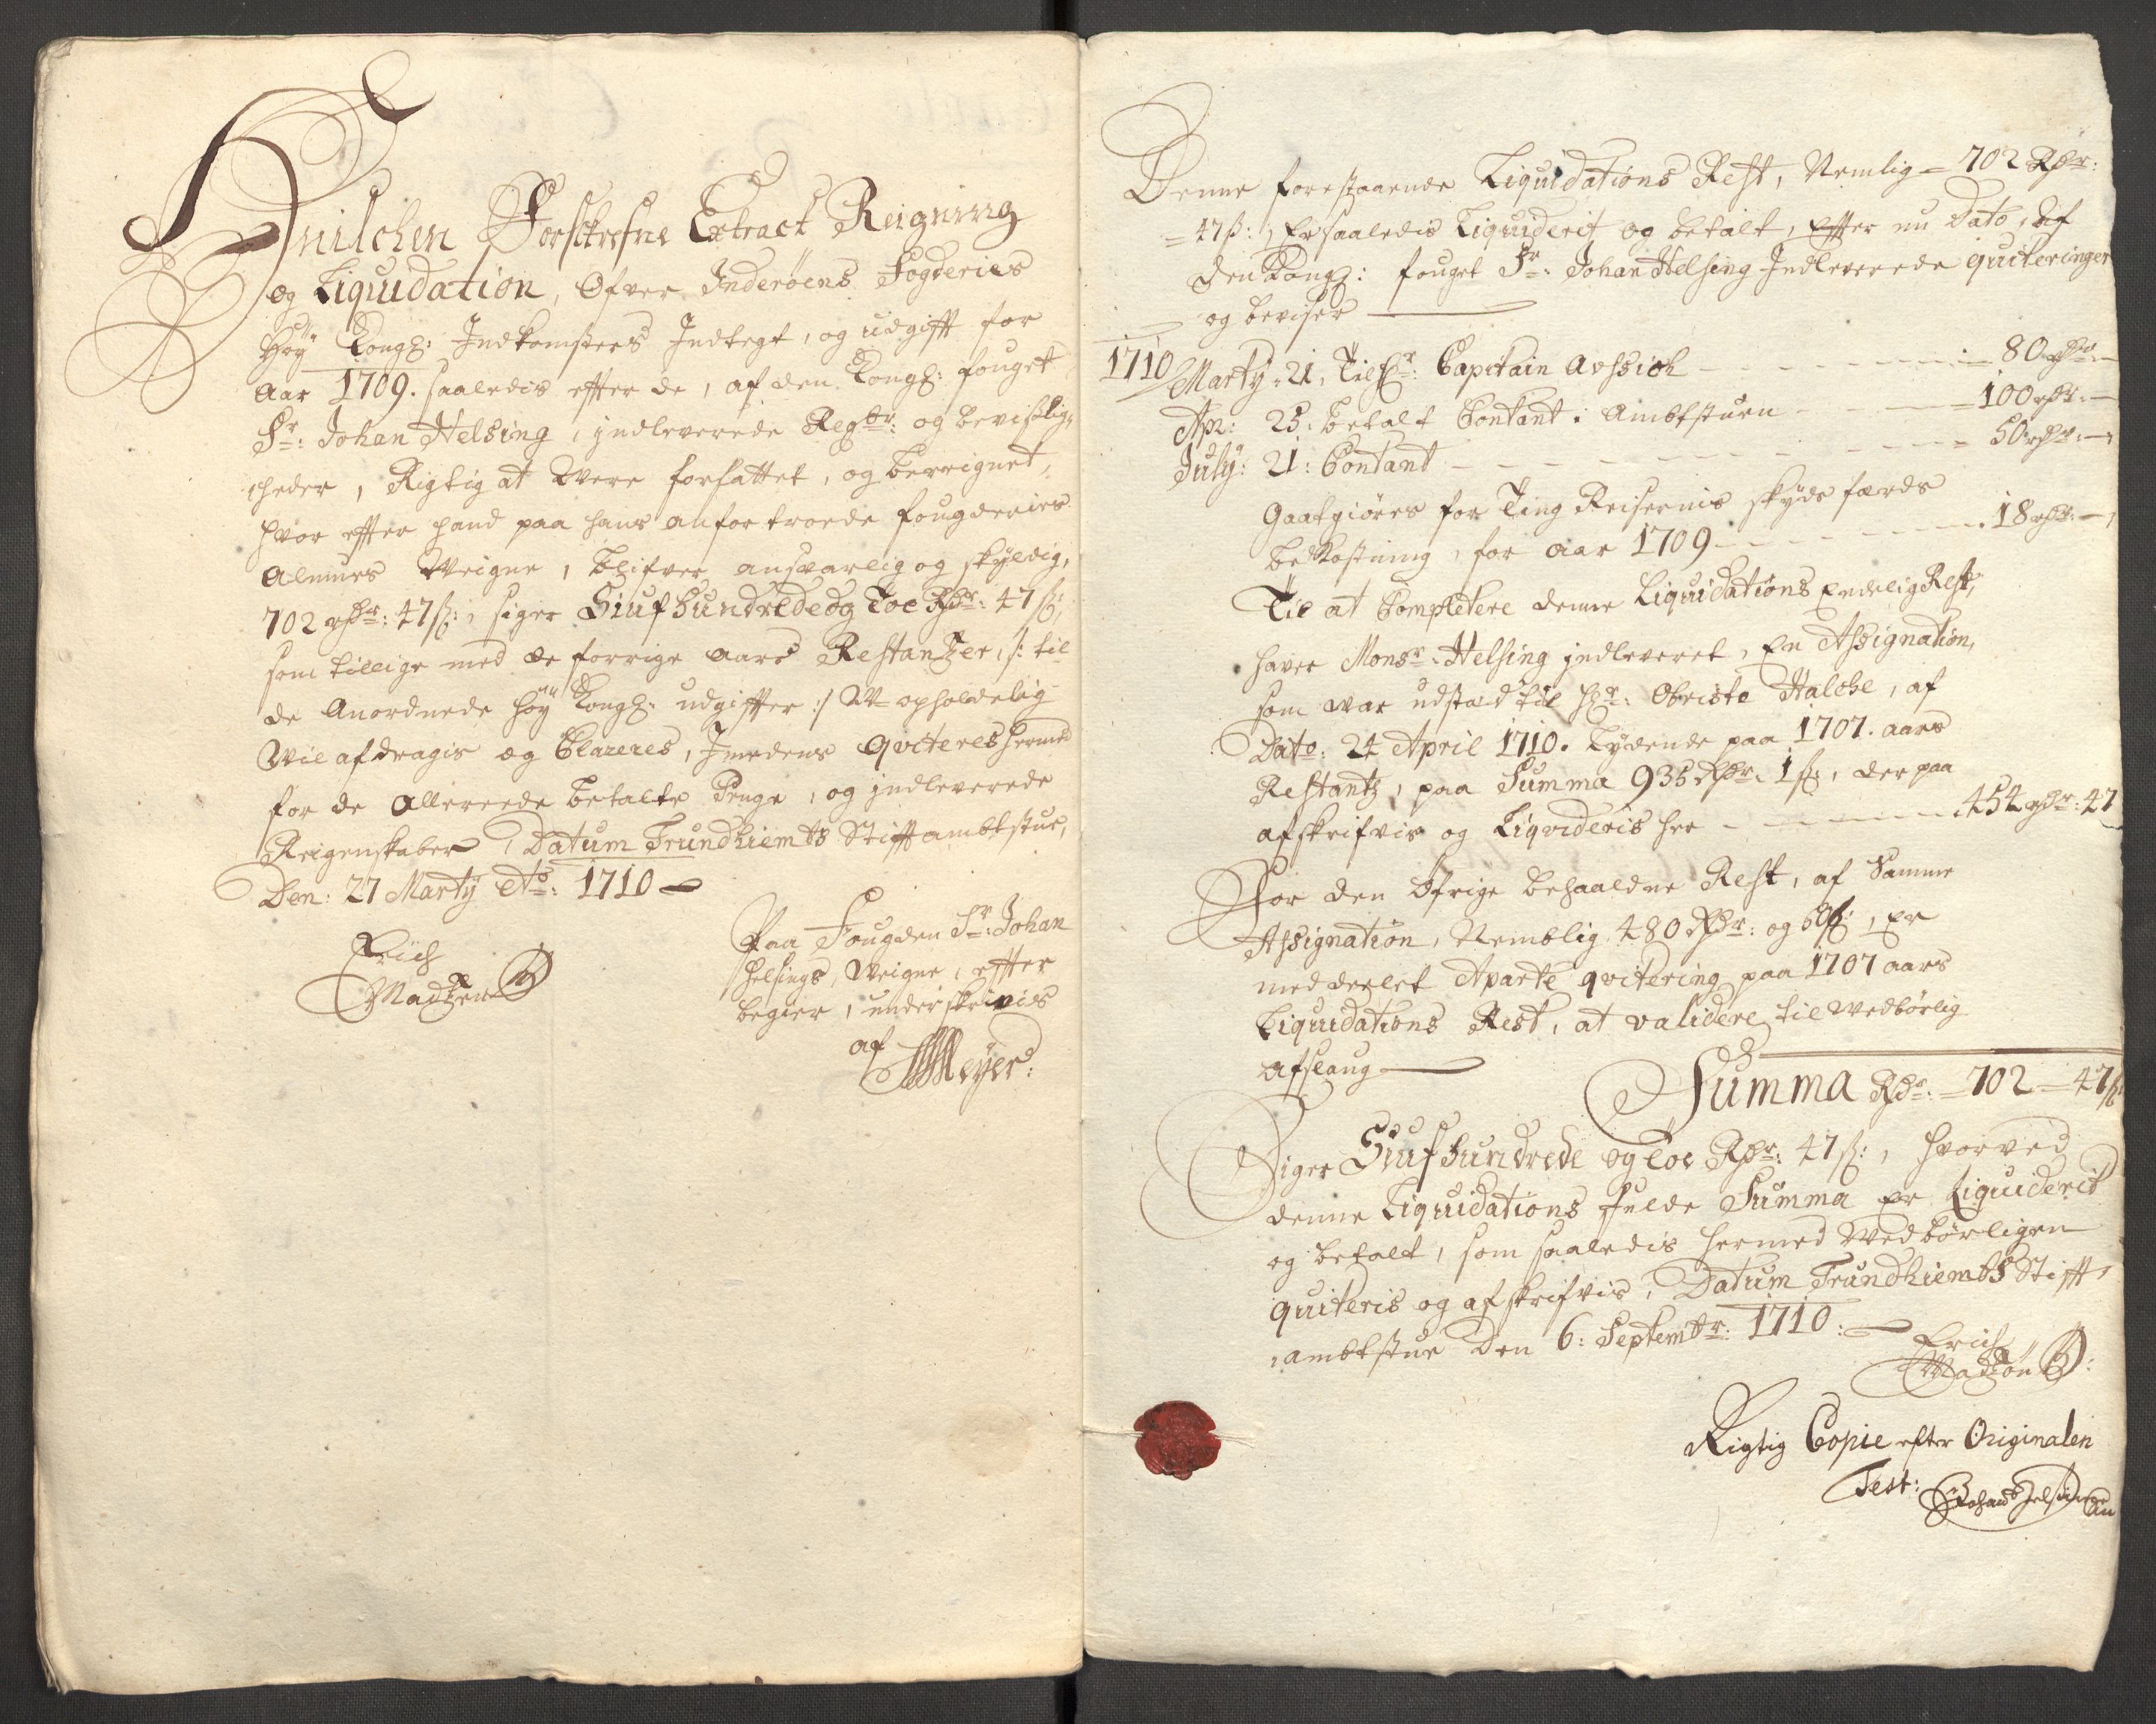 Hvilchen Forskrefne Extract Reigning
og Liquidation, Ofver Inderöens Fogderies
Höy Kongl: Indkomsters Indtegt, og udgifft for
Aar 1709. saaledis effter de, af den Kongl: fouget
Sr: Johan Helsing, indleverede Regbr: og bevislig-
heder, Rigtig at Were forfattet, og berreignet,
hvor effter hand paa hans anfortroede fougderies
Almues Weigne, blifver ansvarlig og skyldig,
702 rdr: 47 ß:, siger Siufhundrede og Toe Rdr: 47 ß;
som tillige med de forrige Aars Restantzer, /: til
de Anordnede höy Kongl: udgiffter :/ U-opholdelig
Wil afdragis og Clareres, Imedens qviteres hermed
for de Allereede betalte Penge, og indleverede
Reigenskaber, Datum Trundhiembs Stifftambtstue,
Den: 27 Marty Ao: 1710
Erich
Madtzen
Paa Fougden Sr: Johan
Helsings, Weigne, effter
begier, underskrivis
af
Meyer:
Denne forestaaende Liquidations Rest, Nemlig = 702 Rdr:
= 47 ß:, Er saaledis Liquiderit og betalt, Effter nu Dato, Af
den Kongl: fouget Sr: Johan Helsing Indleverede quiteringer
og beviser
1710 Marty = 21, Til Hr: Capitain - 80 rdr: -
Apr: 25: betalt Contant i Ambtstuen - 100 rdr: -
July: 21: Contant - 50 rdr: -
Gaatgiöres for Ting Reisernis skyds færds
bekostning, for aar 1709 - 18 rdr: -
Til at Completere denne Liquidations Endelig Rest,
haver Monsr: Helsing indleveret, En Assignation,
som war udstæd til Hr: Obriste Kalche, af
Dato: 24 April 1710. Lydende paa 1707. aars
Restantz, paa Summa 935 Rdr: 1 ß:, der paa
afskrifvis og Liqvideris her - 454 rdr: 47
For den öfrige behaaldne Rest, af Samme
Assignation, Nemblig 480 Rdr: og 50 ß:, Er
meddeelet Aparte qvitering paa 1707 aars
Liquidations Rest, at validere til wedbörlig
afslaug
Summa Rdr: = 702 = 47 ß
Siger Siufhundrede og toe Rdr: 47 ß:, hvorved
denne Liquidations fulde Summa er Liquiderit
og betalt, som saaledis hermed Wedbörligen
quiteris og afskrifvis, Datum Trundhiembs Stifft-
ambtstue Den 6: Septembr: 1710:
Erich
Madtzön
Rigtig Copie efter Originalen
Test: Johan Helsing